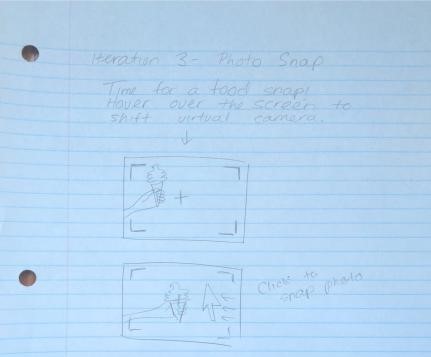 Iteration 3 - Photo Snap
Time for a food snap!
Hover over the screen to
shift virtual camera.
Click to
snap photo